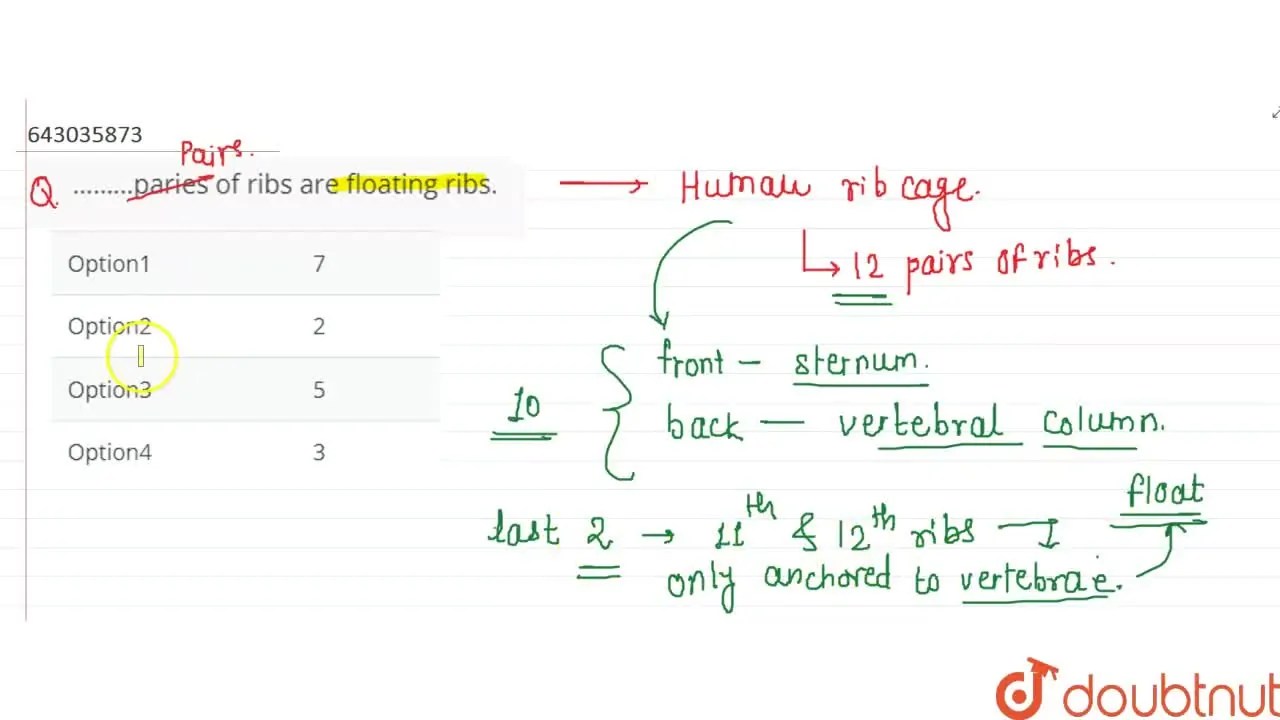 643035873
Pairs.
Q .........paries of ribs are floating ribs.
Human rib cage.
12 pairs of ribs.
Option1 7
Option2 2
Option3 5
Option4 3
10
front - sternum.
back - vertebral column.
float
last 2 → 11th & 12th ribs
only anchored to vertebrae.
doubtnut